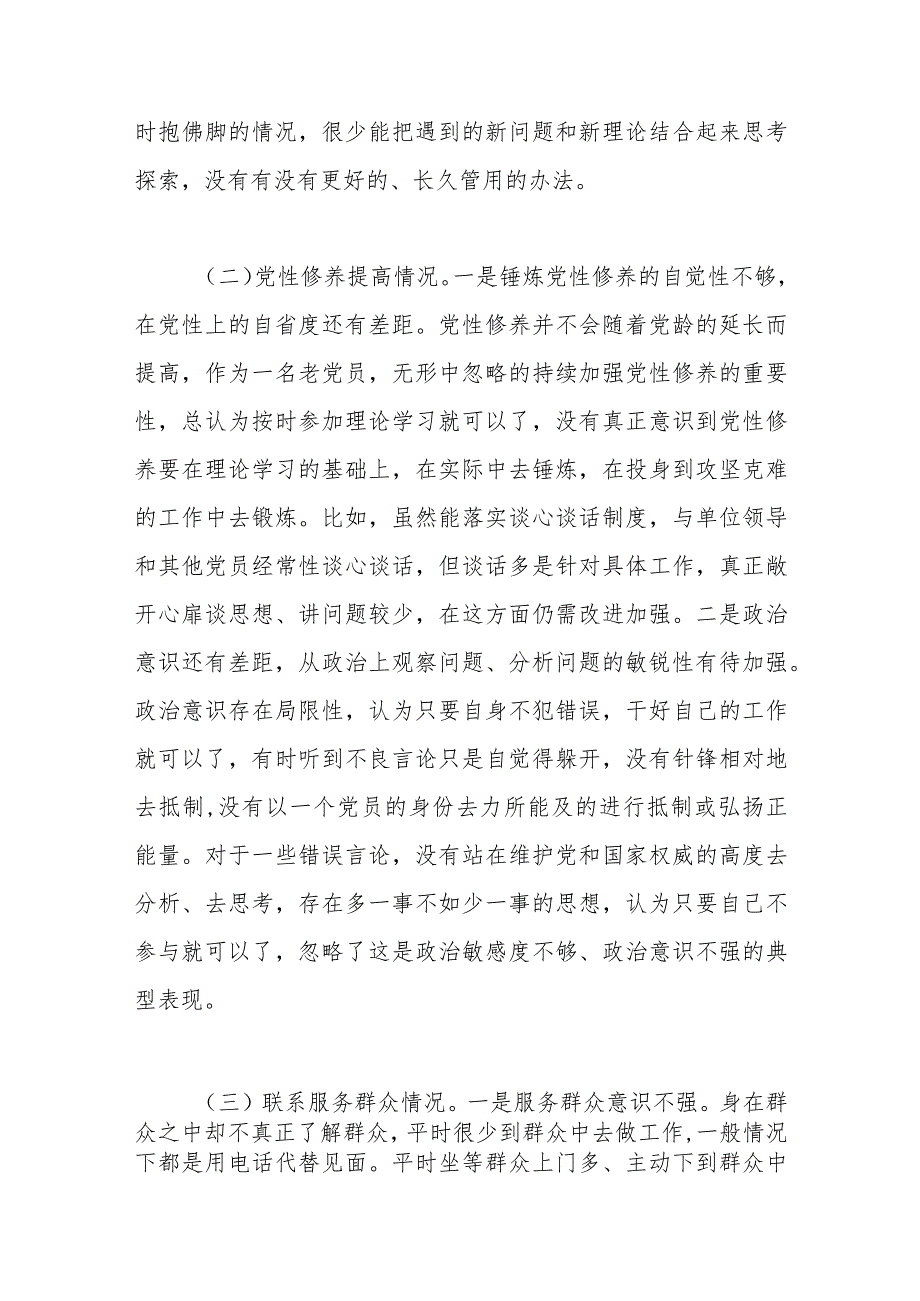 时抱佛脚的情况，很少能把遇到的新问题和新理论结合起来思考
探索，没有有没有更好的、长久管用的办法。
（二）党性修养提高情况。一是锤炼党性修养的自觉性不够，
在党性上的自省度还有差距。党性修养并不会随着党龄的延长而
提高，作为一名老党员，无形中忽略的持续加强党性修养的重要
性，总认为按时参加理论学习就可以了，没有真正意识到党性修
养要在理论学习的基础上，在实际中去锤炼，在投身到攻坚克难
的工作中去锻炼。比如，虽然能落实谈心谈话制度，与单位领导
和其他党员经常性谈心谈话，但谈话多是针对具体工作，真正敞
开心扉谈思想、讲问题较少，在这方面仍需改进加强。二是政治
意识还有差距，从政治上观察问题、分析问题的敏锐性有待加强。
政治意识存在局限性，认为只要自身不犯错误，干好自己的工作
就可以了，有时听到不良言论只是自觉得躲开，没有针锋相对地
去抵制,没有以一个党员的身份去力所能及的进行抵制或弘扬正
能量。对于一些错误言论，没有站在维护党和国家权威的高度去
分析、去思考，存在多一事不如少一事的思想，认为只要自己不
参与就可以了，忽略了这是政治敏感度不够、政治意识不强的典
型表现。
（三）联系服务群众情况。一是服务群众意识不强。身在群
众之中却不真正了解群众，平时很少到群众中去做工作,一般情况
下都是用电话代替见面。平时坐等群众上门多、主动下到群众中